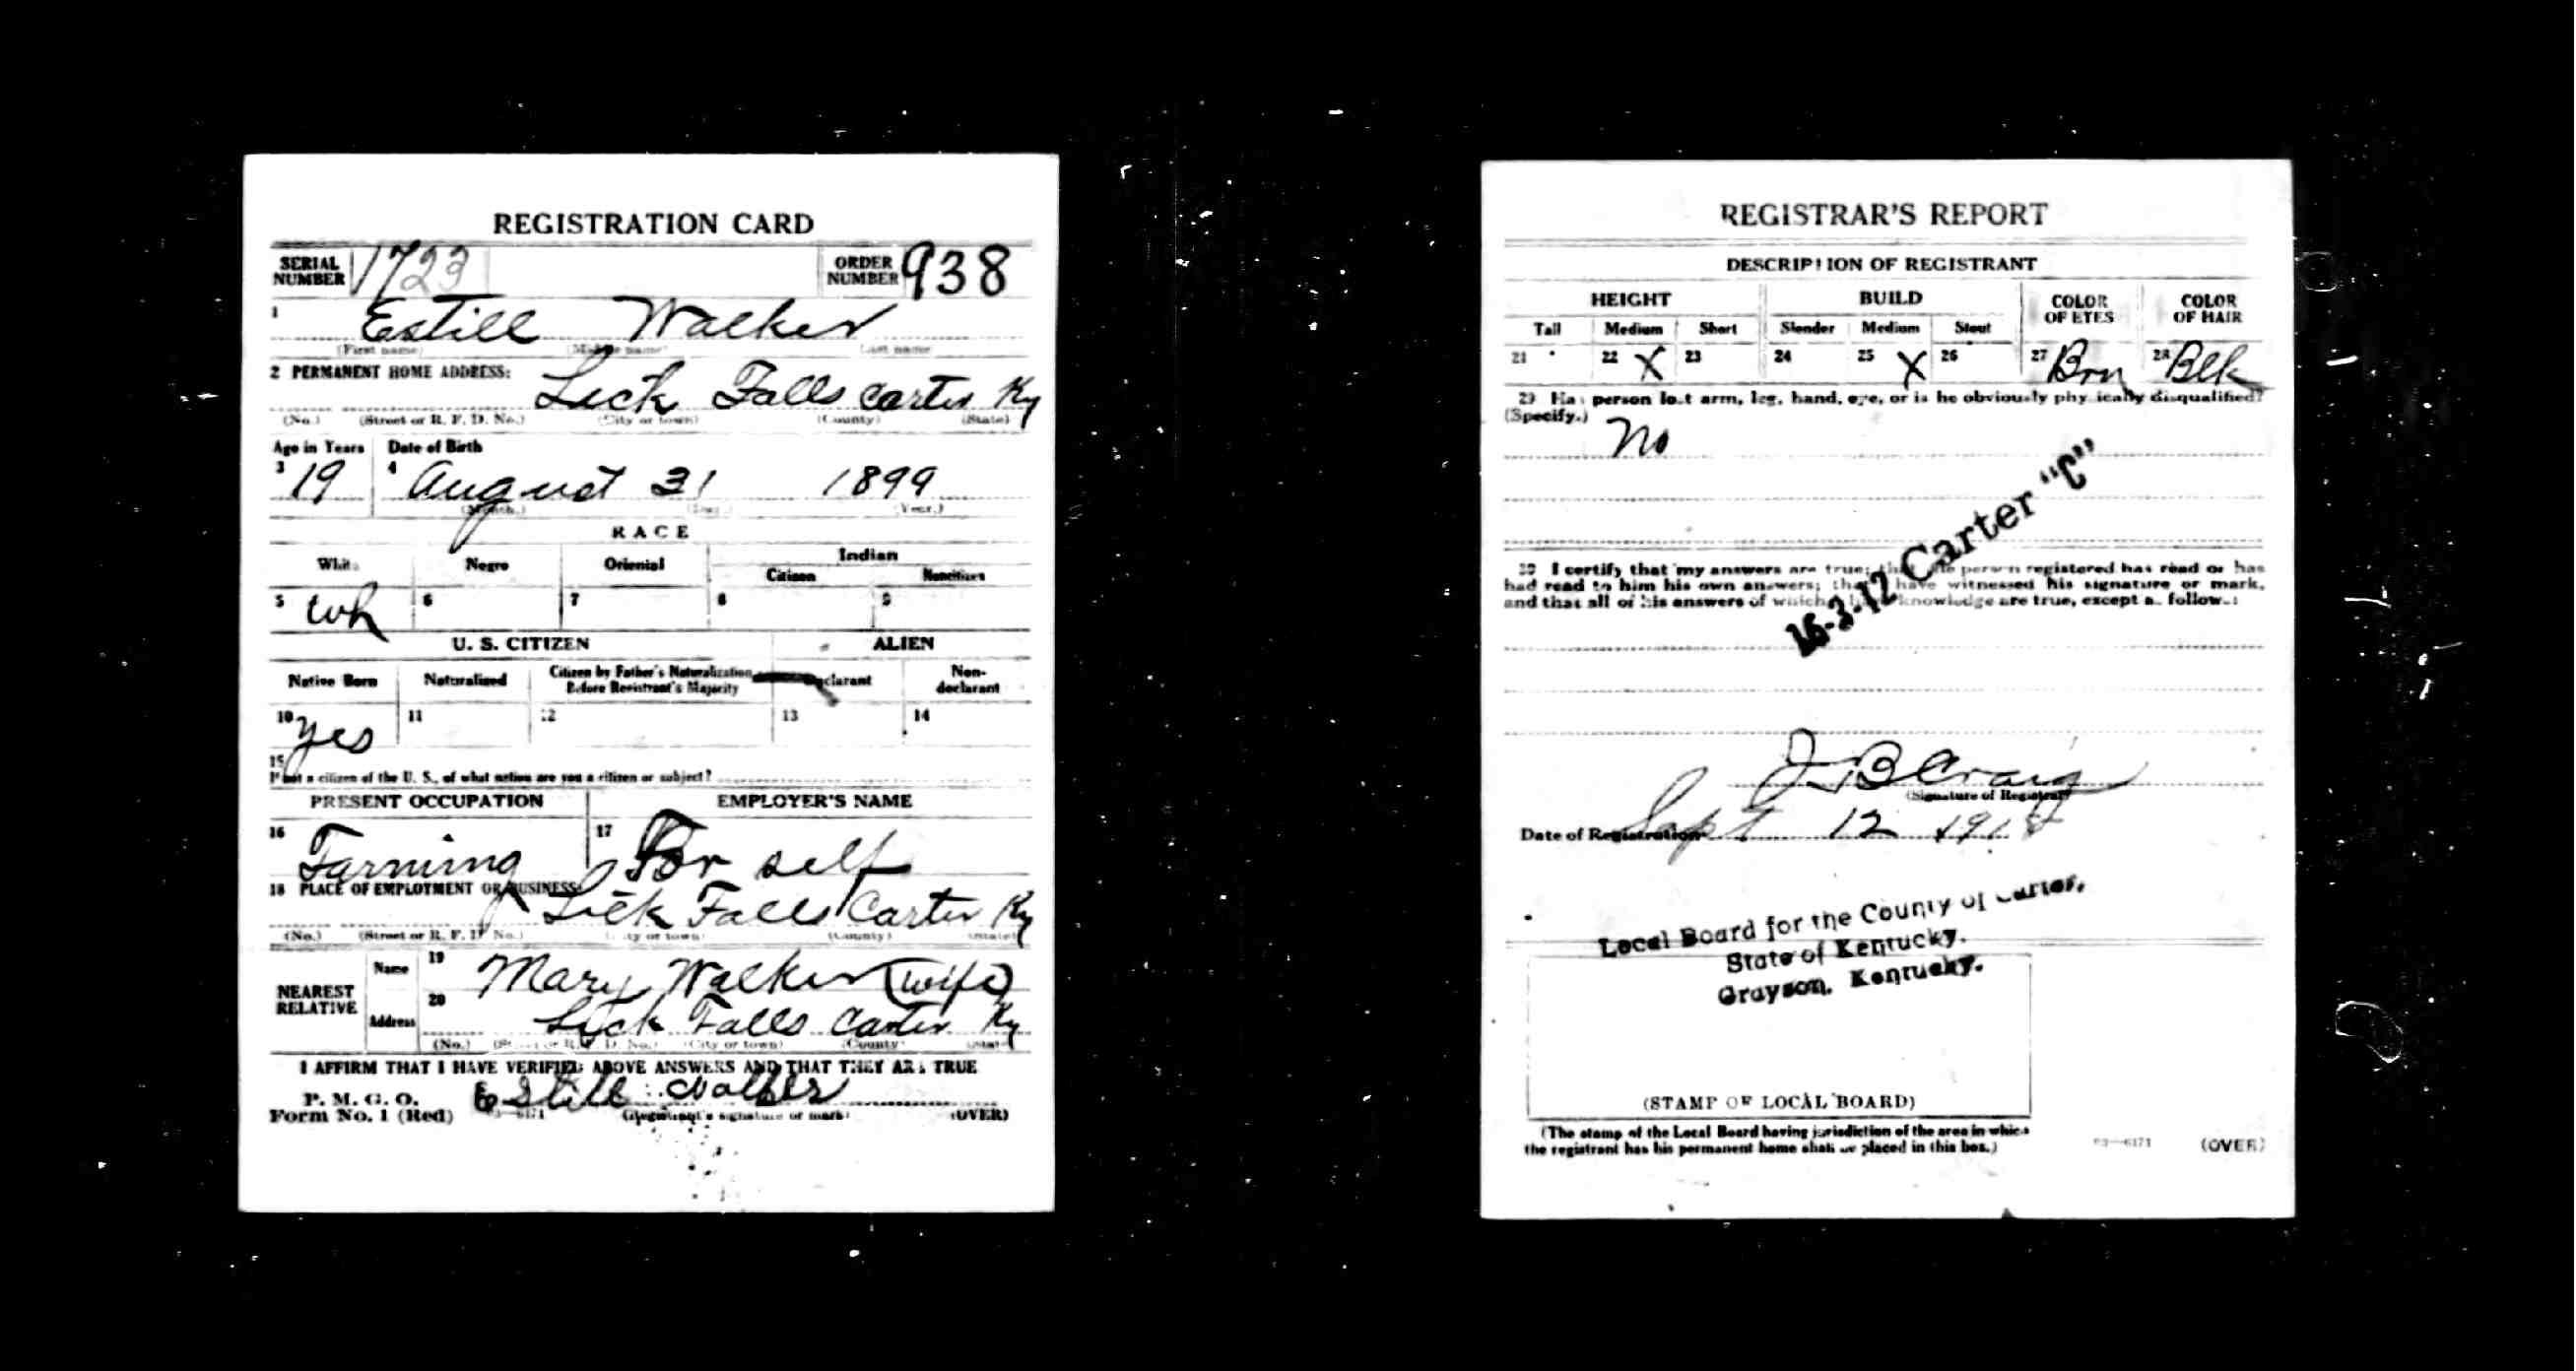 REGISTRATION CARD
SERIAL NUMBER 1723 ORDER NUMBER 938
1 Estill Walker
(First name) (Middle name) Last name
2 PERMANENT HOME ADDRESS: Lick Falls Carter Ky
(No.) (Street or R. F. D. No.) (City or town) (County) (State)
Age in Years Date of Birth
3 19 4 August 31 1899
(Month.) (Day.) (Year.)
RACE
White Negro Oriental Indian
Citizen Noncitizen
5 Wh 6 7 8 9
U. S. CITIZEN ALIEN
Native Born Naturalized Citizen by Father's Naturalization Before Registrant's Majority Declarant Non-declarant
10 yes 11 12 13 14
15 If not a citizen of the U. S., of what nation are you a citizen or subject?
PRESENT OCCUPATION EMPLOYER'S NAME
16 Farming 17 For self
18 PLACE OF EMPLOYMENT OR BUSINESS: Lick Falls Carter Ky
(No.) (Street or R. F. D. No.) (City or town) (County) (State)
NEAREST RELATIVE
Name 19 Mary Walker (wife)
Address 20 Lick Falls Carter Ky
(No.) (Street or R. F. D. No.) (City or town) (County) (State)
I AFFIRM THAT I HAVE VERIFIED ABOVE ANSWERS AND THAT THEY ARE TRUE
P. M. G. O.
Form No. 1 (Red) Estill Walker
(Registrant's signature or mark) (OVER)
REGISTRAR'S REPORT
DESCRIPTION OF REGISTRANT
HEIGHT BUILD COLOR OF EYES COLOR OF HAIR
Tall Medium Short Slender Medium Stout
21 22 X 23 24 25 X 26 27 Brn 28 Blk
29 Has person lost arm, leg, hand, eye, or is he obviously physically disqualified?
(Specify.) No
16-3-12 Carter "C"
30 I certify that my answers are true; that the person registered has read or has
had read to him his own answers; that I have witnessed his signature or mark,
and that all of his answers of which I have knowledge are true, except as follows:
J B Craig
(Signature of Registrar)
Date of Registration Sept 12 1918
Local Board for the County of Carter,
State of Kentucky.
Grayson, Kentucky.
(STAMP OF LOCAL BOARD)
(The stamp of the Local Board having jurisdiction of the area in which
the registrant has his permanent home shall be placed in this box.)
03—6171 (OVER)